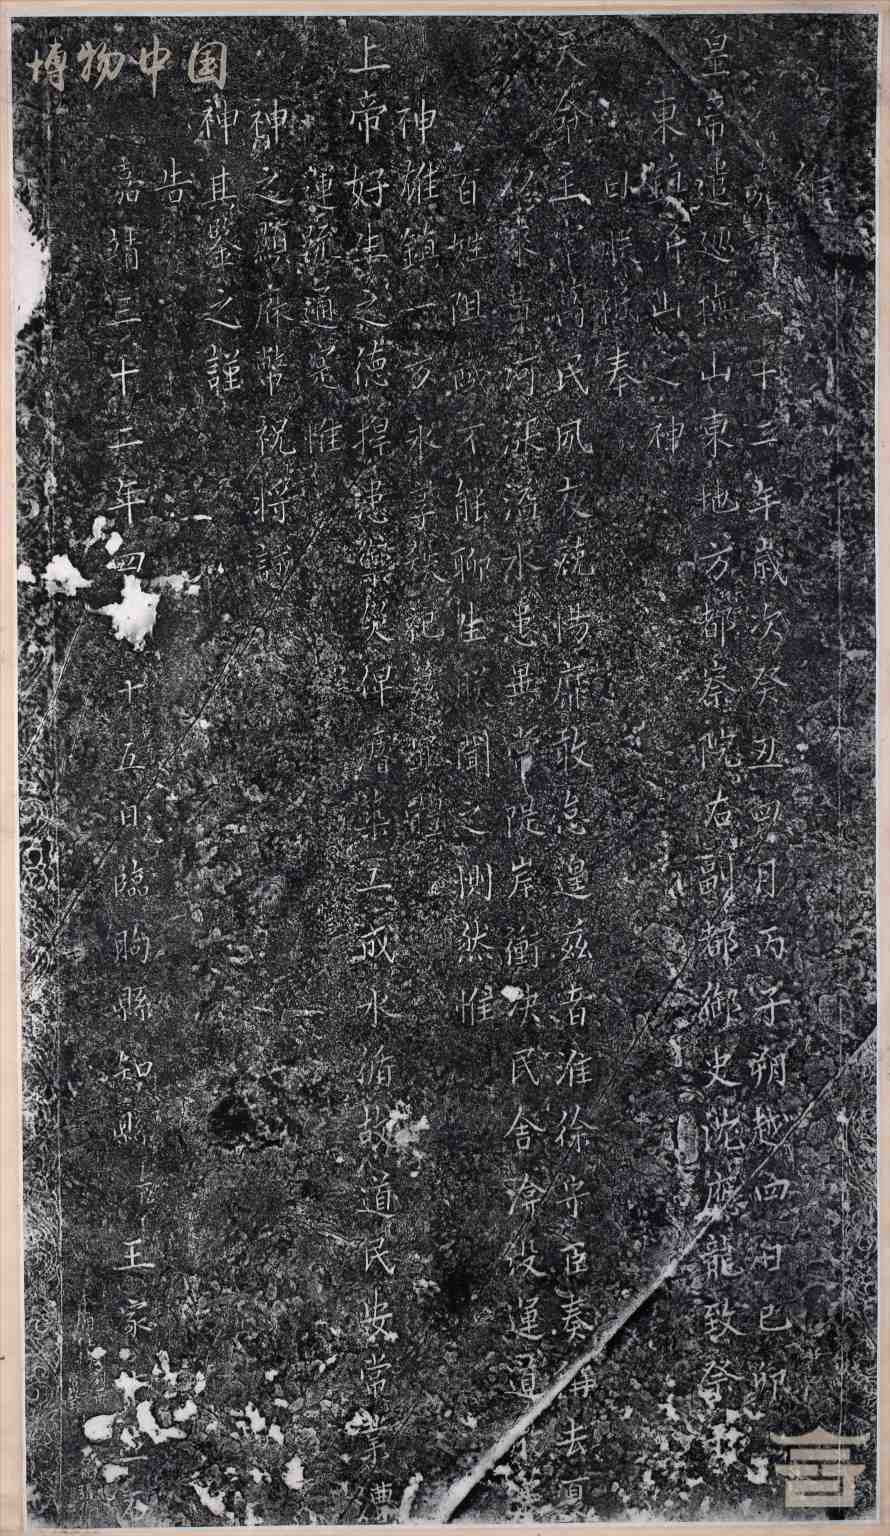 博物中国
維
嘉靖三十二年歲次癸丑四月丙子朔越四日己卯
皇帝遣巡撫山東地方都察院右副都御史沈應龍致祭
東鎮沂山之神
曰朕祗奉
天命主宰萬民夙夜兢惕靡敢怠遑茲者淮徐守臣奏稱去夏
以來黃河漲溢水患異常隄岸衝决民舍渰没運道
百姓阻飢不能聊生朕聞之惻然惟
神雄鎮一方永享秩祀
上帝好生之德捍患禦災俾庸築工成水循故道民安常業漕
運疏通寔惟
神之顯庥幣祝將誠
神其鑒之謹
告
嘉靖三十二年四 十五日臨朐縣知縣 王家